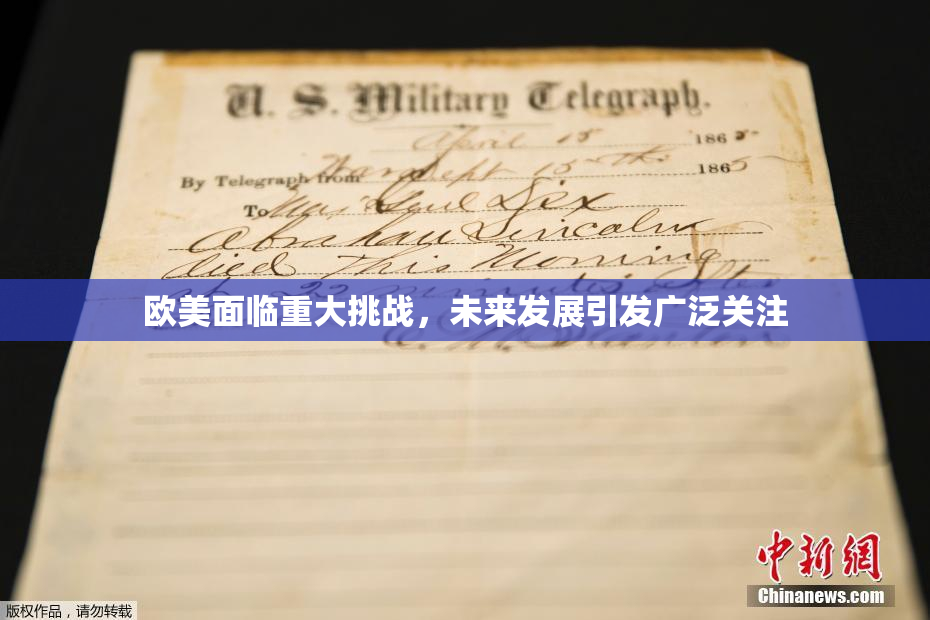 U. S. Military Telegraph.
April 15 1865
By Telegraph from War Dept 15th 1865
To Maj Genl Dix
Abraham Lincoln
died This Morning
at 22 minutes after
欧美面临重大挑战，未来发展引发广泛关注
E. M. Stanton
中新網
Chinanews.com
版权作品，请勿转载